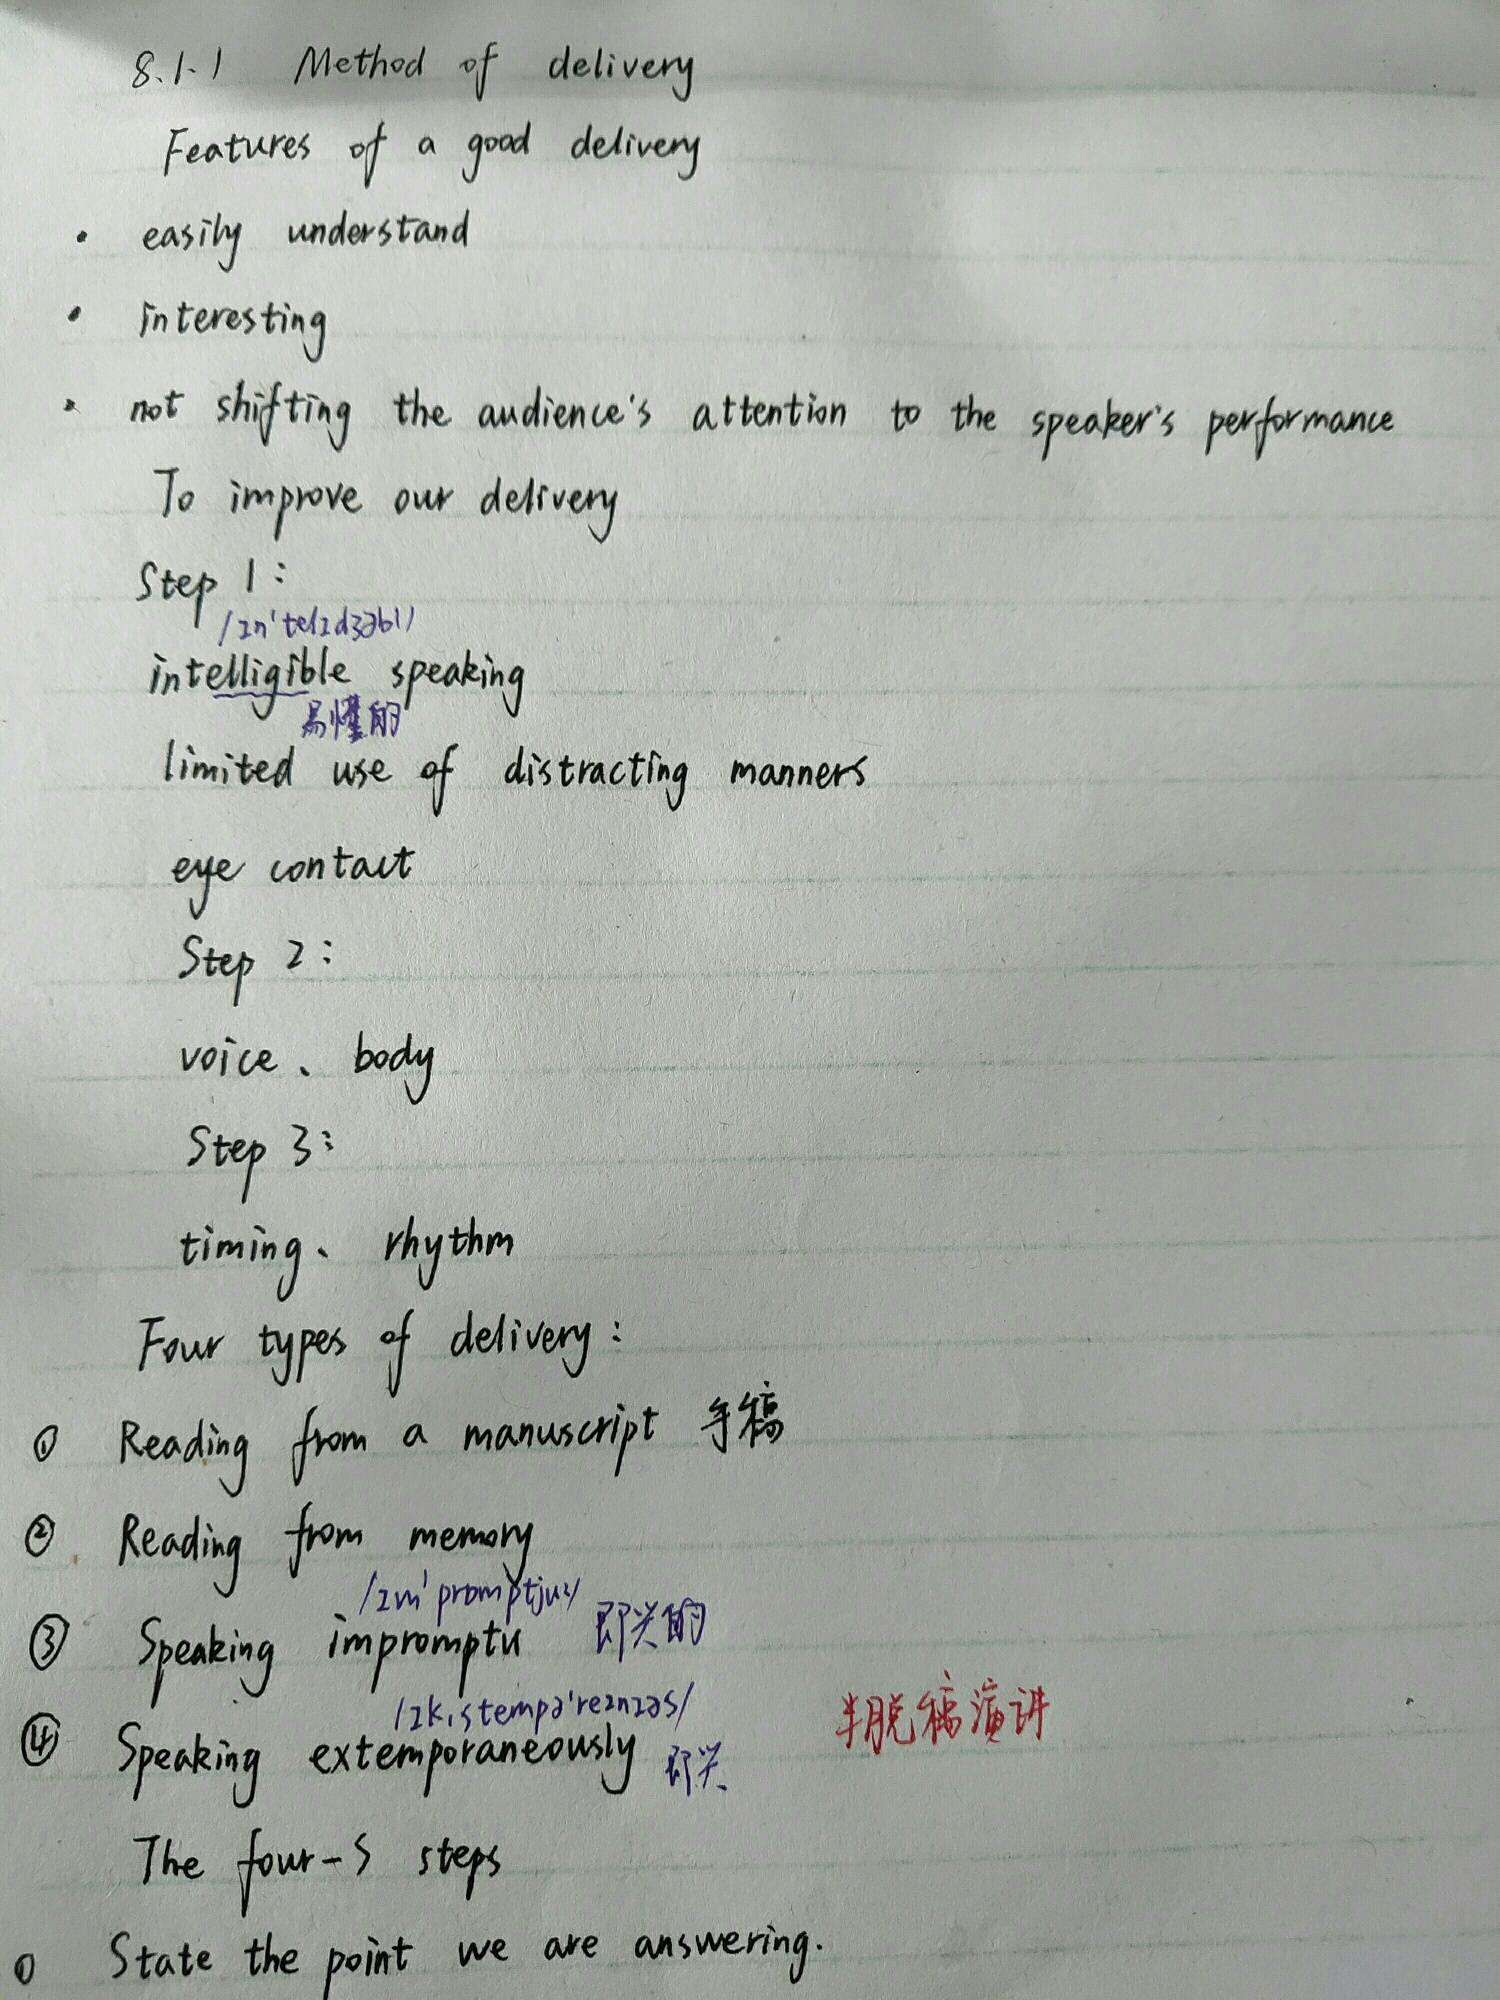 8.1.1 Method of delivery
Features of a good delivery
· easily understand
· interesting
· not shifting the audience's attention to the speaker's performance
To improve our delivery
Step 1:
/ɪn'telɪdʒəbl/
intelligible speaking
易懂的
limited use of distracting manners
eye contact
Step 2:
voice、body
Step 3:
timing、rhythm
Four types of delivery:
① Reading from a manuscript 手稿
② Reading from memory
/ɪm'prɒmptjuː/
③ Speaking impromptu 即兴的
/ɪkˌstempə'reɪnɪəs/
④ Speaking extemporaneously 即兴 半脱稿演讲
The four-S steps
① State the point we are answering.